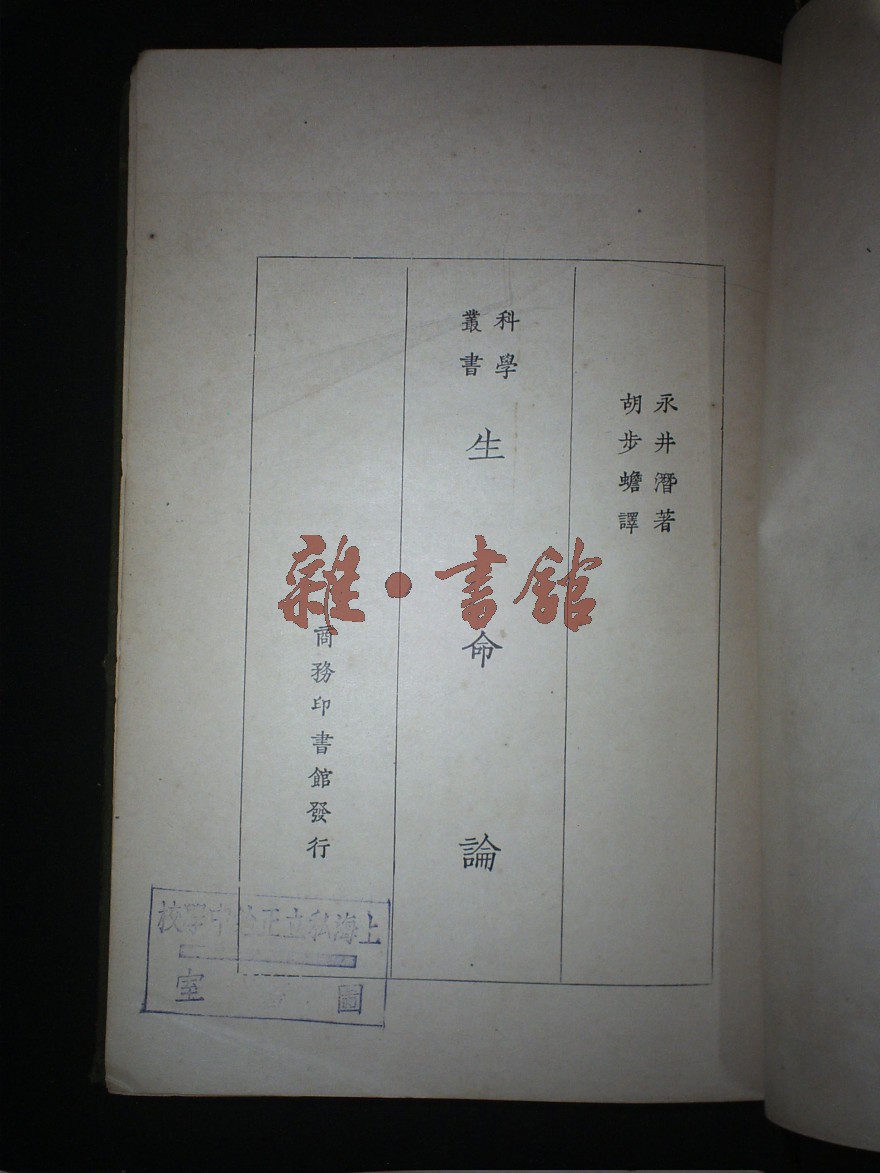 永井潛著
胡步蟾譯
科學
叢書
生命論
商務印書館發行
雜·書館
上海私立正始中學校
圖書室